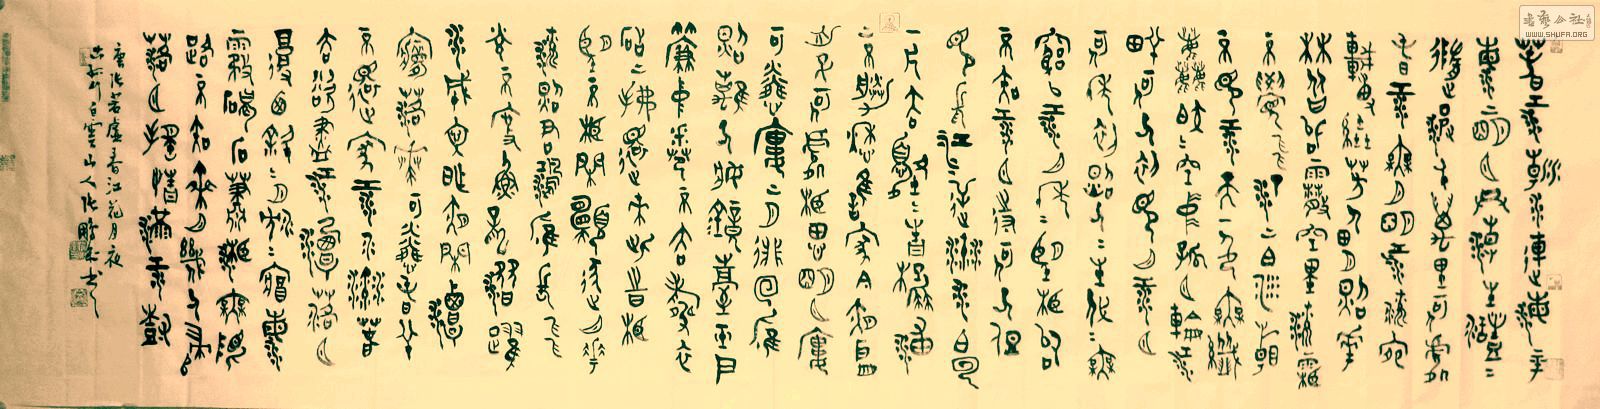 春江潮水連海平
海上明月共潮生灩灩
隨波千萬里何處
春江無月明江流宛
轉遶芳甸月照花
林皆似霰空里流霜
不覺飛汀上白沙看
不見江天一色無纖
塵皎皎空中孤月輪江
畔何人初見月江月
何年初照人人生代代無
窮已江月年年望相似
不知江月待何人但
見長江送流水白雲
一片去悠悠青楓浦上
不勝愁誰家今夜扁
舟子何處相思明月樓
可憐樓上月徘徊應
照離人妝鏡臺玉戶
簾中卷不去搗衣
砧上拂還來此時相
望不相聞願逐月華
流照君鴻雁長飛
光不度魚龍潛躍
水成文昨夜閒潭
夢落花可憐春半
不還家江水流春
去欲盡江潭落月
復西斜斜月沉沉藏海
霧碣石瀟湘無限
路不知乘月幾人歸
落月搖情滿江樹
唐張若虛春江花月夜
白雲山人張書
書法公社
WWW.SHUFA.ORG